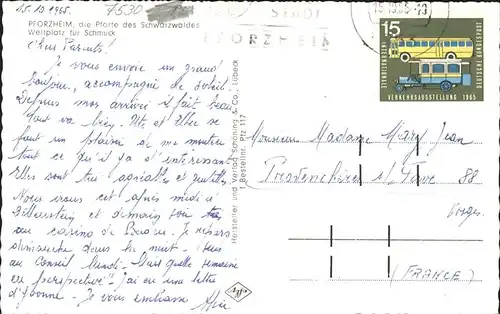 15.10.1965
7530
PFORZHEIM, die Pforte des Schwarzwaldes
Weltplatz für Schmuck
STADT
PFORZHEIM
15
DEUTSCHE BUNDESPOST
VERKEHRSAUSSTELLUNG 1965
Chers Parents!
Je vous envoie un grand
bonjour, accompagné de soleil
Depuis mon arrivée il fait beau
Tout va bien. Ute et se
fait un plaisir de me montrer
tout ce qu'il y a d'intéressant
Elles sont très agréables et gentilles
Nous irons cet après midi à
et demain soir
au casino de Je rentre
dimanche dans la nuit
au Conseil lundi. Quelle semaine
en perspective! J'ai eu une lettre
d'Yvonne. Je vous embrasse
Hersteller und Verlag Schöning & Co., Lübeck
Bestellnr. Pfz 117
Monsieur Madame Jean
88
Vosges
(FRANCE)